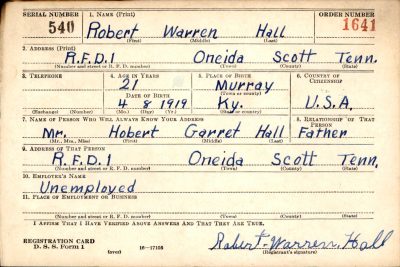 SERIAL NUMBER 1. NAME (Print) ORDER NUMBER
540 Robert Warren Hall 1641
(First) (Middle) (Last)
2. ADDRESS (Print)
R.F.D.1 Oneida Scott Tenn.
(Number and street or R. F. D. number) (Town) (County) (State)
3. TELEPHONE 4. AGE IN YEARS 5. PLACE OF BIRTH 6. COUNTRY OF CITIZENSHIP
21 Murray
DATE OF BIRTH (Town or county)
4 8 1919 Ky. U.S.A.
(Exchange) (Number) (Mo.) (Day) (Yr.) (State or country)
7. NAME OF PERSON WHO WILL ALWAYS KNOW YOUR ADDRESS 8. RELATIONSHIP OF THAT PERSON
Mr. Hobert Garret Hall Father
(Mr., Mrs., Miss) (First) (Middle) (Last)
9. ADDRESS OF THAT PERSON
R.F.D.1 Oneida Scott Tenn.
(Number and street or R. F. D. number) (Town) (County) (State)
10. EMPLOYER'S NAME
Unemployed
11. PLACE OF EMPLOYMENT OR BUSINESS
(Number and street or R. F. D. number) (Town) (County) (State)
I AFFIRM THAT I HAVE VERIFIED ABOVE ANSWERS AND THAT THEY ARE TRUE.
REGISTRATION CARD
D. S. S. Form 1 (over) 16—17105 Robert Warren Hall
(Registrant's signature)